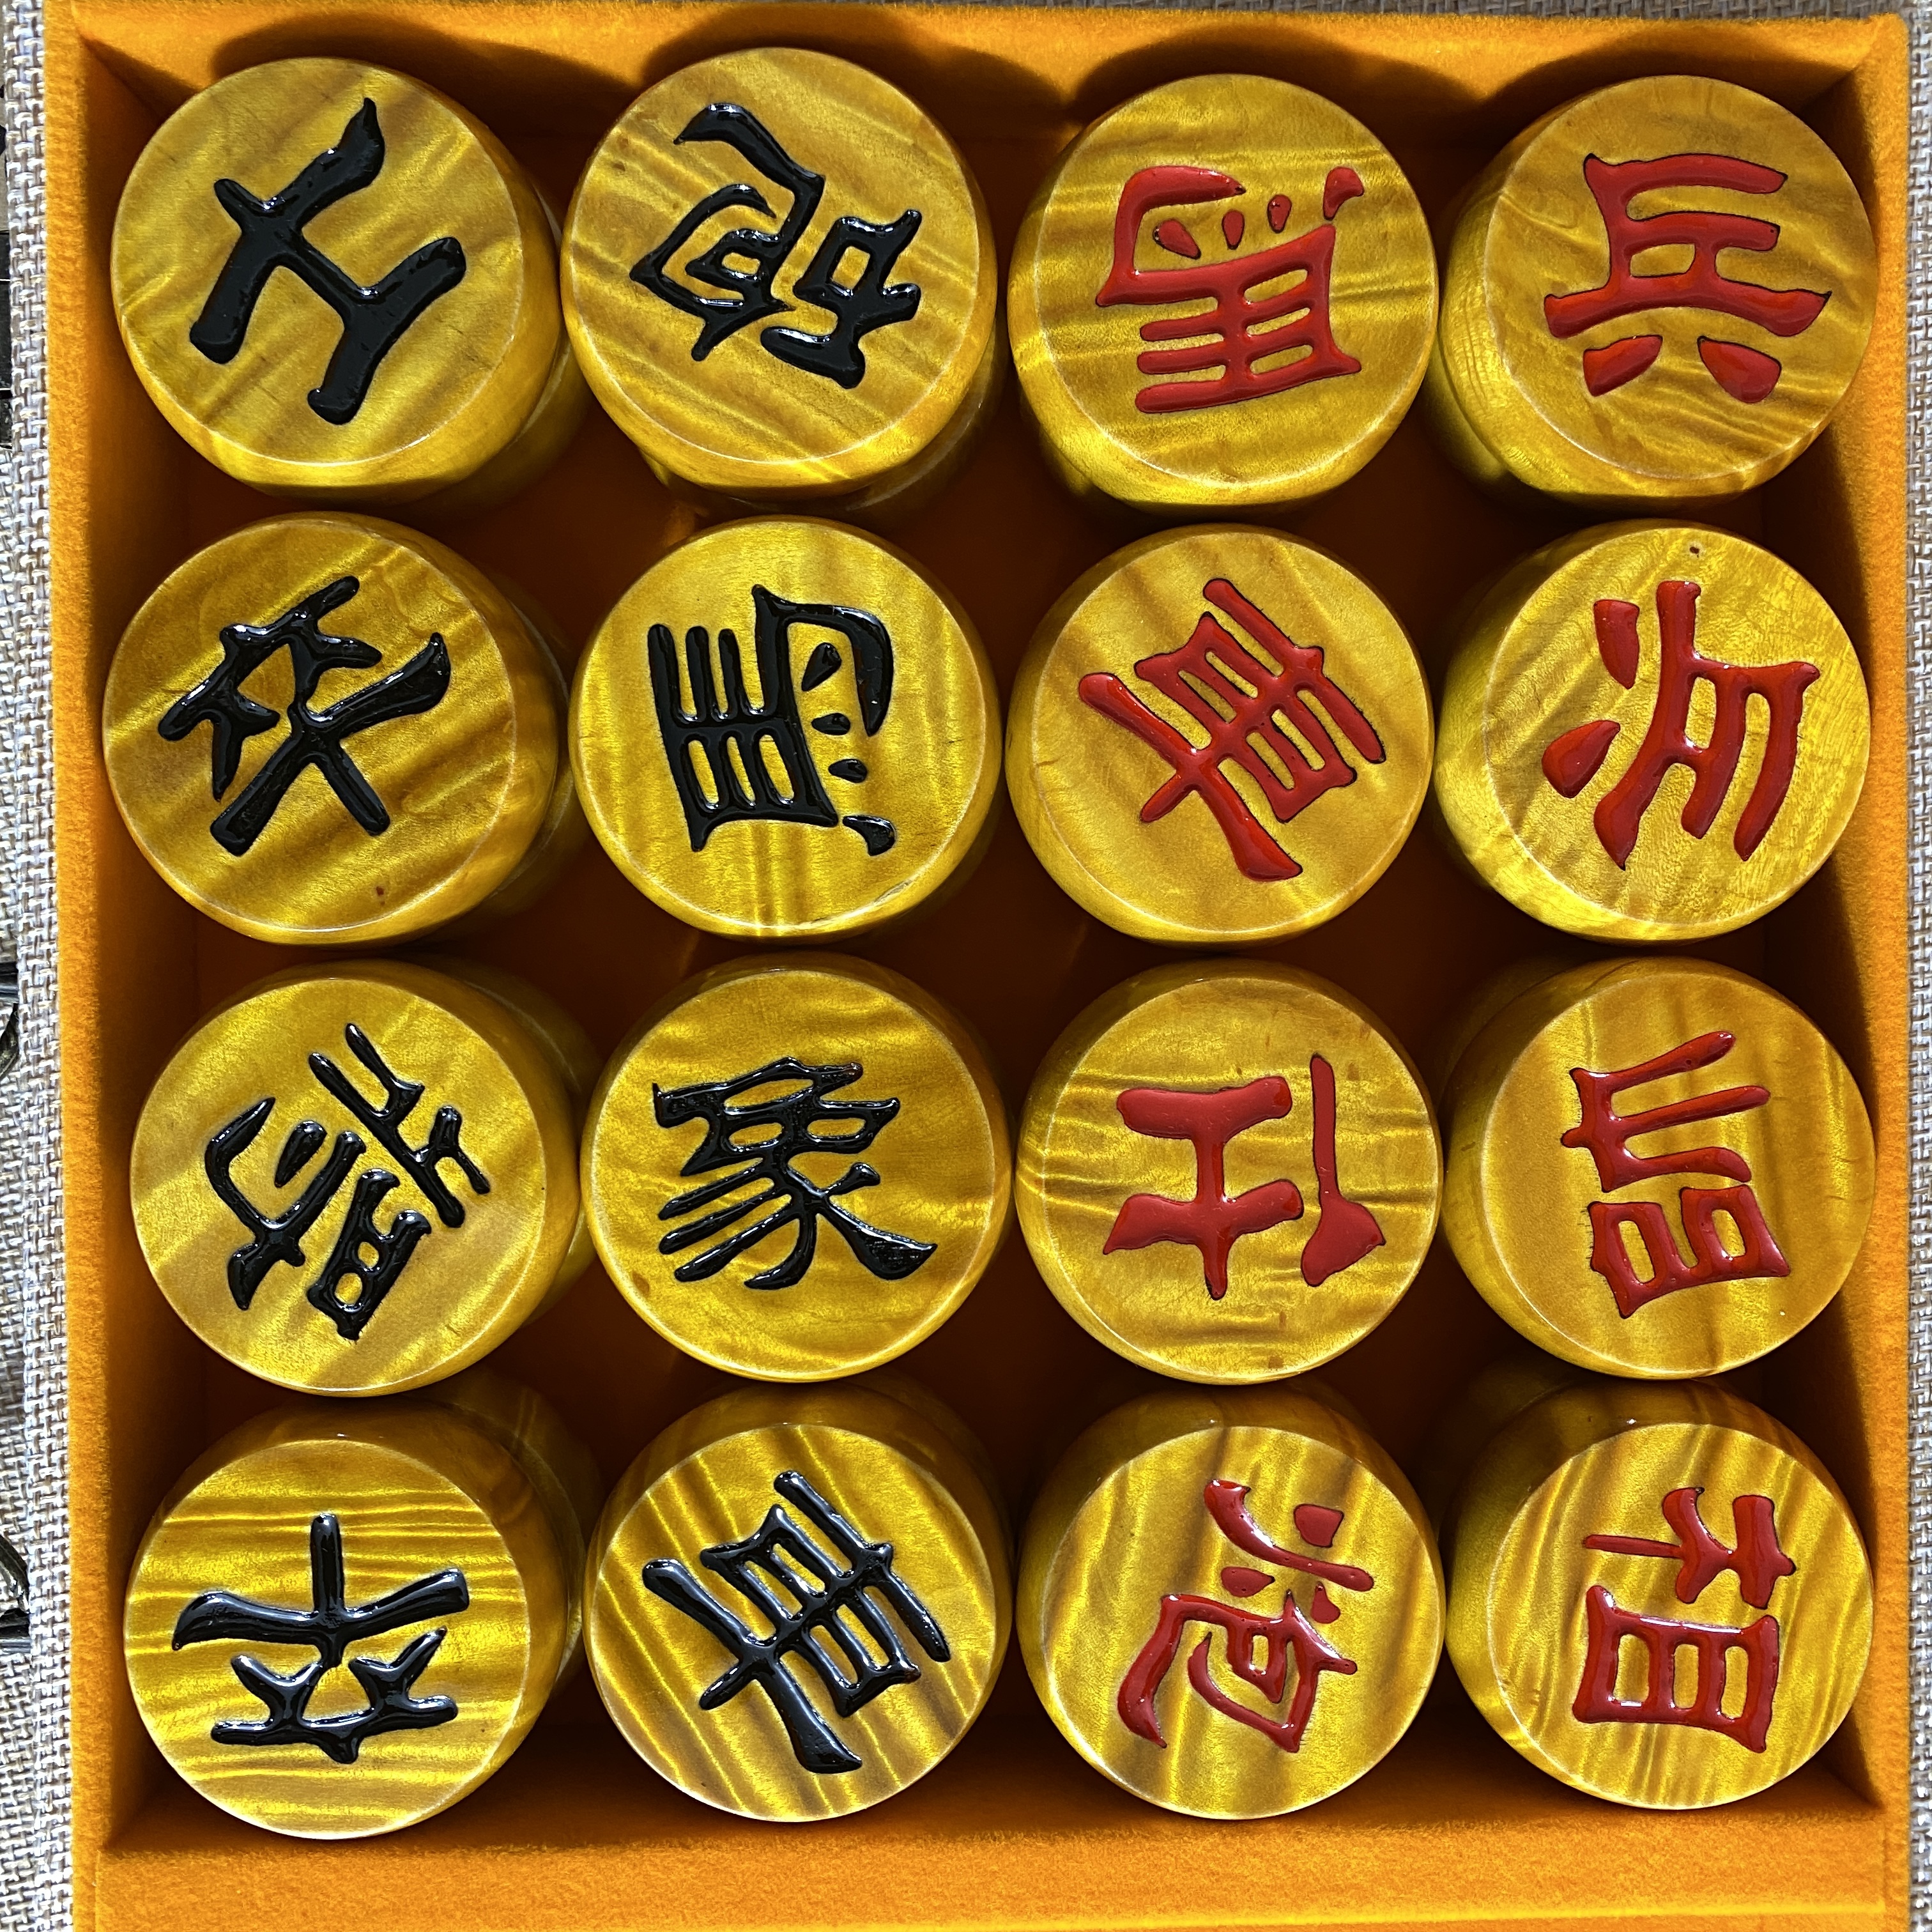 士 砲 馬 兵
卒 馬 車 兵
將 象 仕 帥
卒 車 炮 相